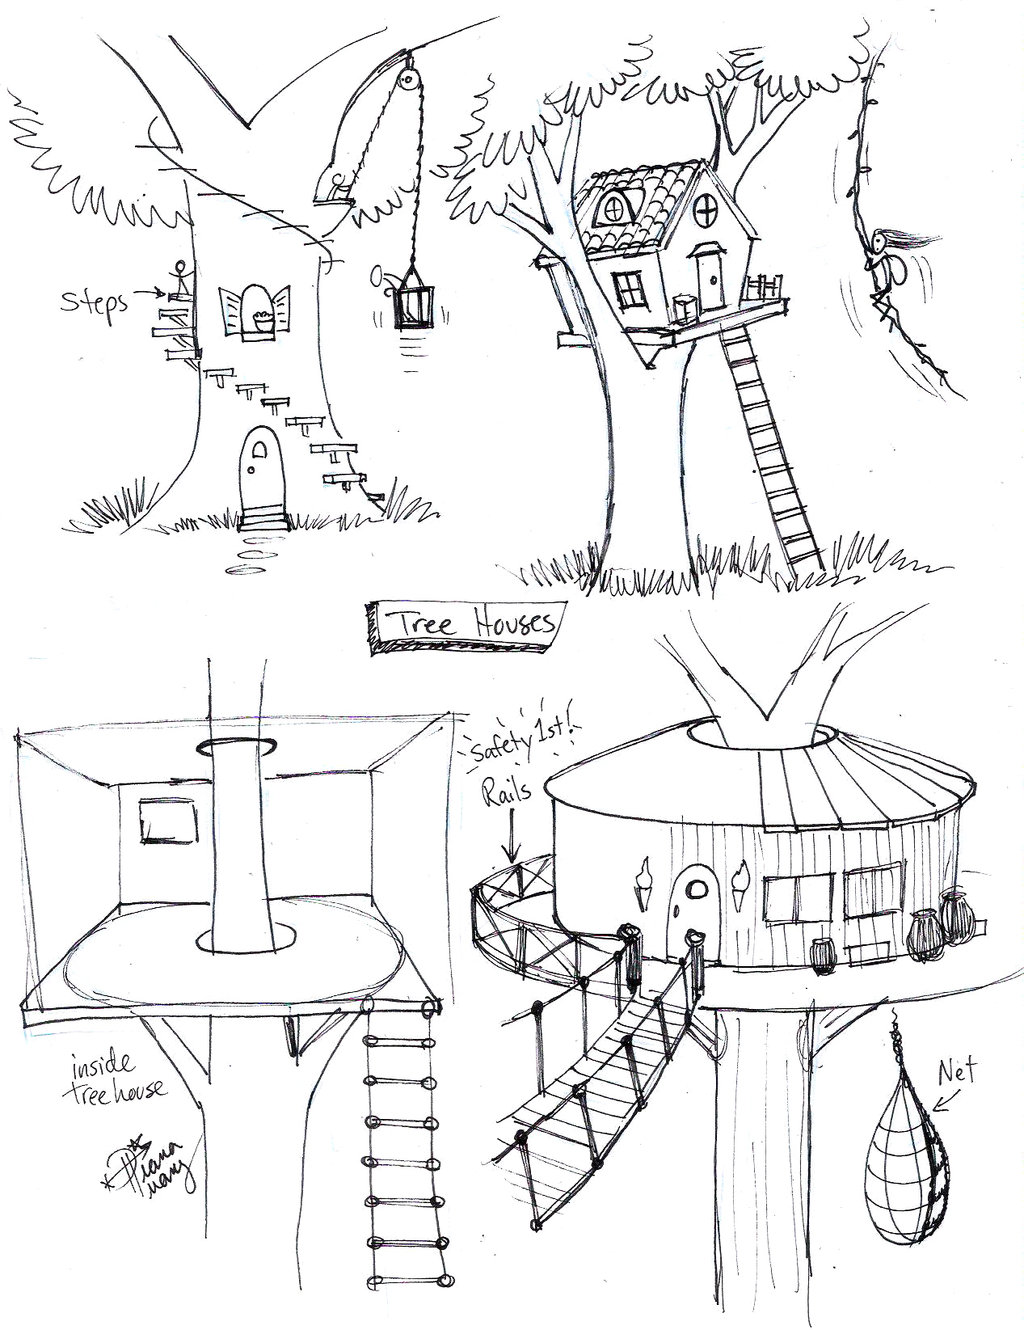 Steps
Tree Houses
Safety 1st!
Rails
inside
treehouse
Net
Diana
Huang